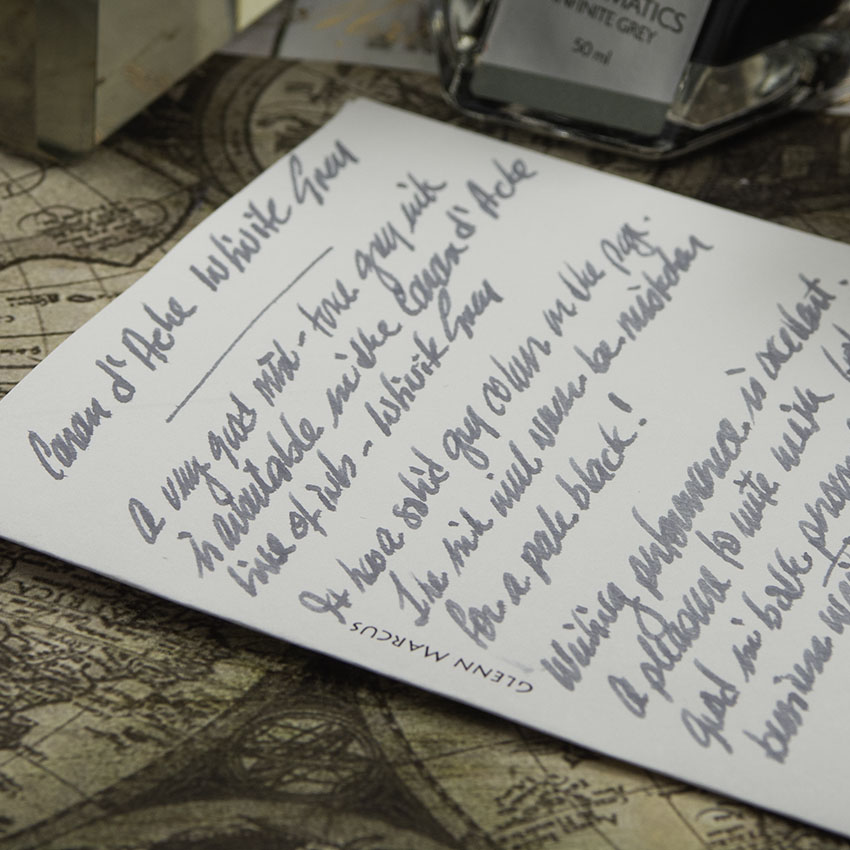 MATICS
INFINITE GREY
50 ml
Caran d'Ache Infinite Grey
A very good mid-tone grey ink
is available in the Caran d'Ache
line of inks - Infinite Grey
It has a solid grey colour on the page.
The ink will never be mistaken
for a pale black!
Writing performance is excellent.
a pleasure to write with
good in both
business
GLENN MARCUS